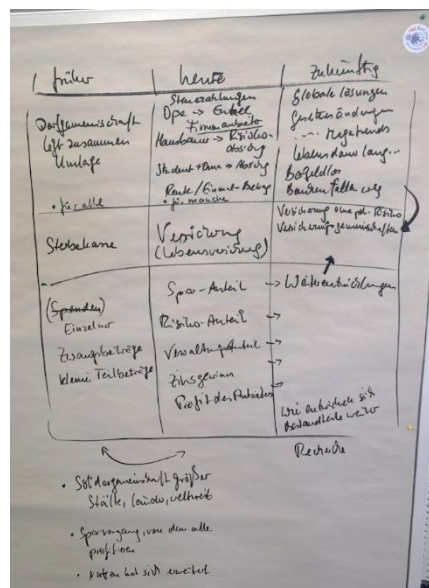 früher
heute
Zukünftig
Dorfgemeinschaft
legt zusammen
Umlage
• für alle
Steuerzahlungen
Opa → Enkel
Firmenanbieter
Hausbauer → Risiko-
absicherg
Student + Oma → Absicg
Rente / Einmal-Betrag
• für manche
Globale Lösungen
Gesetzesändungen
Lebensdauer lang...
Bargeldlos
Banken fallen weg
Sterbekasse
Versicherung
(Lebensversicherung)
Versicherung ohne Risiko
Versicherungsgemeinschaften
(Spenden)
Einzelner
Zwangsbeträge
kleine Teilbeträge
Spar-Anteil
Risiko-Anteil →
Verwaltungsanteil →
Zinsgewinn →
Profit des Anbieters
→ Weiterentwicklungen
Wie entwickeln sich
Bestandteile weiter
Recherche
• Solidargemeinschaft größer
Städte, Länder, weltweit
• Sparvorgang, von dem alle
profitieren
• Nutzen hat sich erweitert